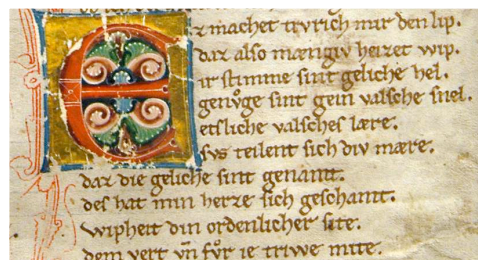 Ez machet trvrich mir den lip.
daz also mængiv heizet wip.
ir stimme sint geliche hel.
genvͦge sint gein valsche snel.
etsliche valsches lære.
svs teilent sich div mære.
daz die geliche sint genamt.
des hat min herze sich geschamt.
wipheit din ordenlicher site.
dem vert vn̄ fvͦr ie triwe mite.